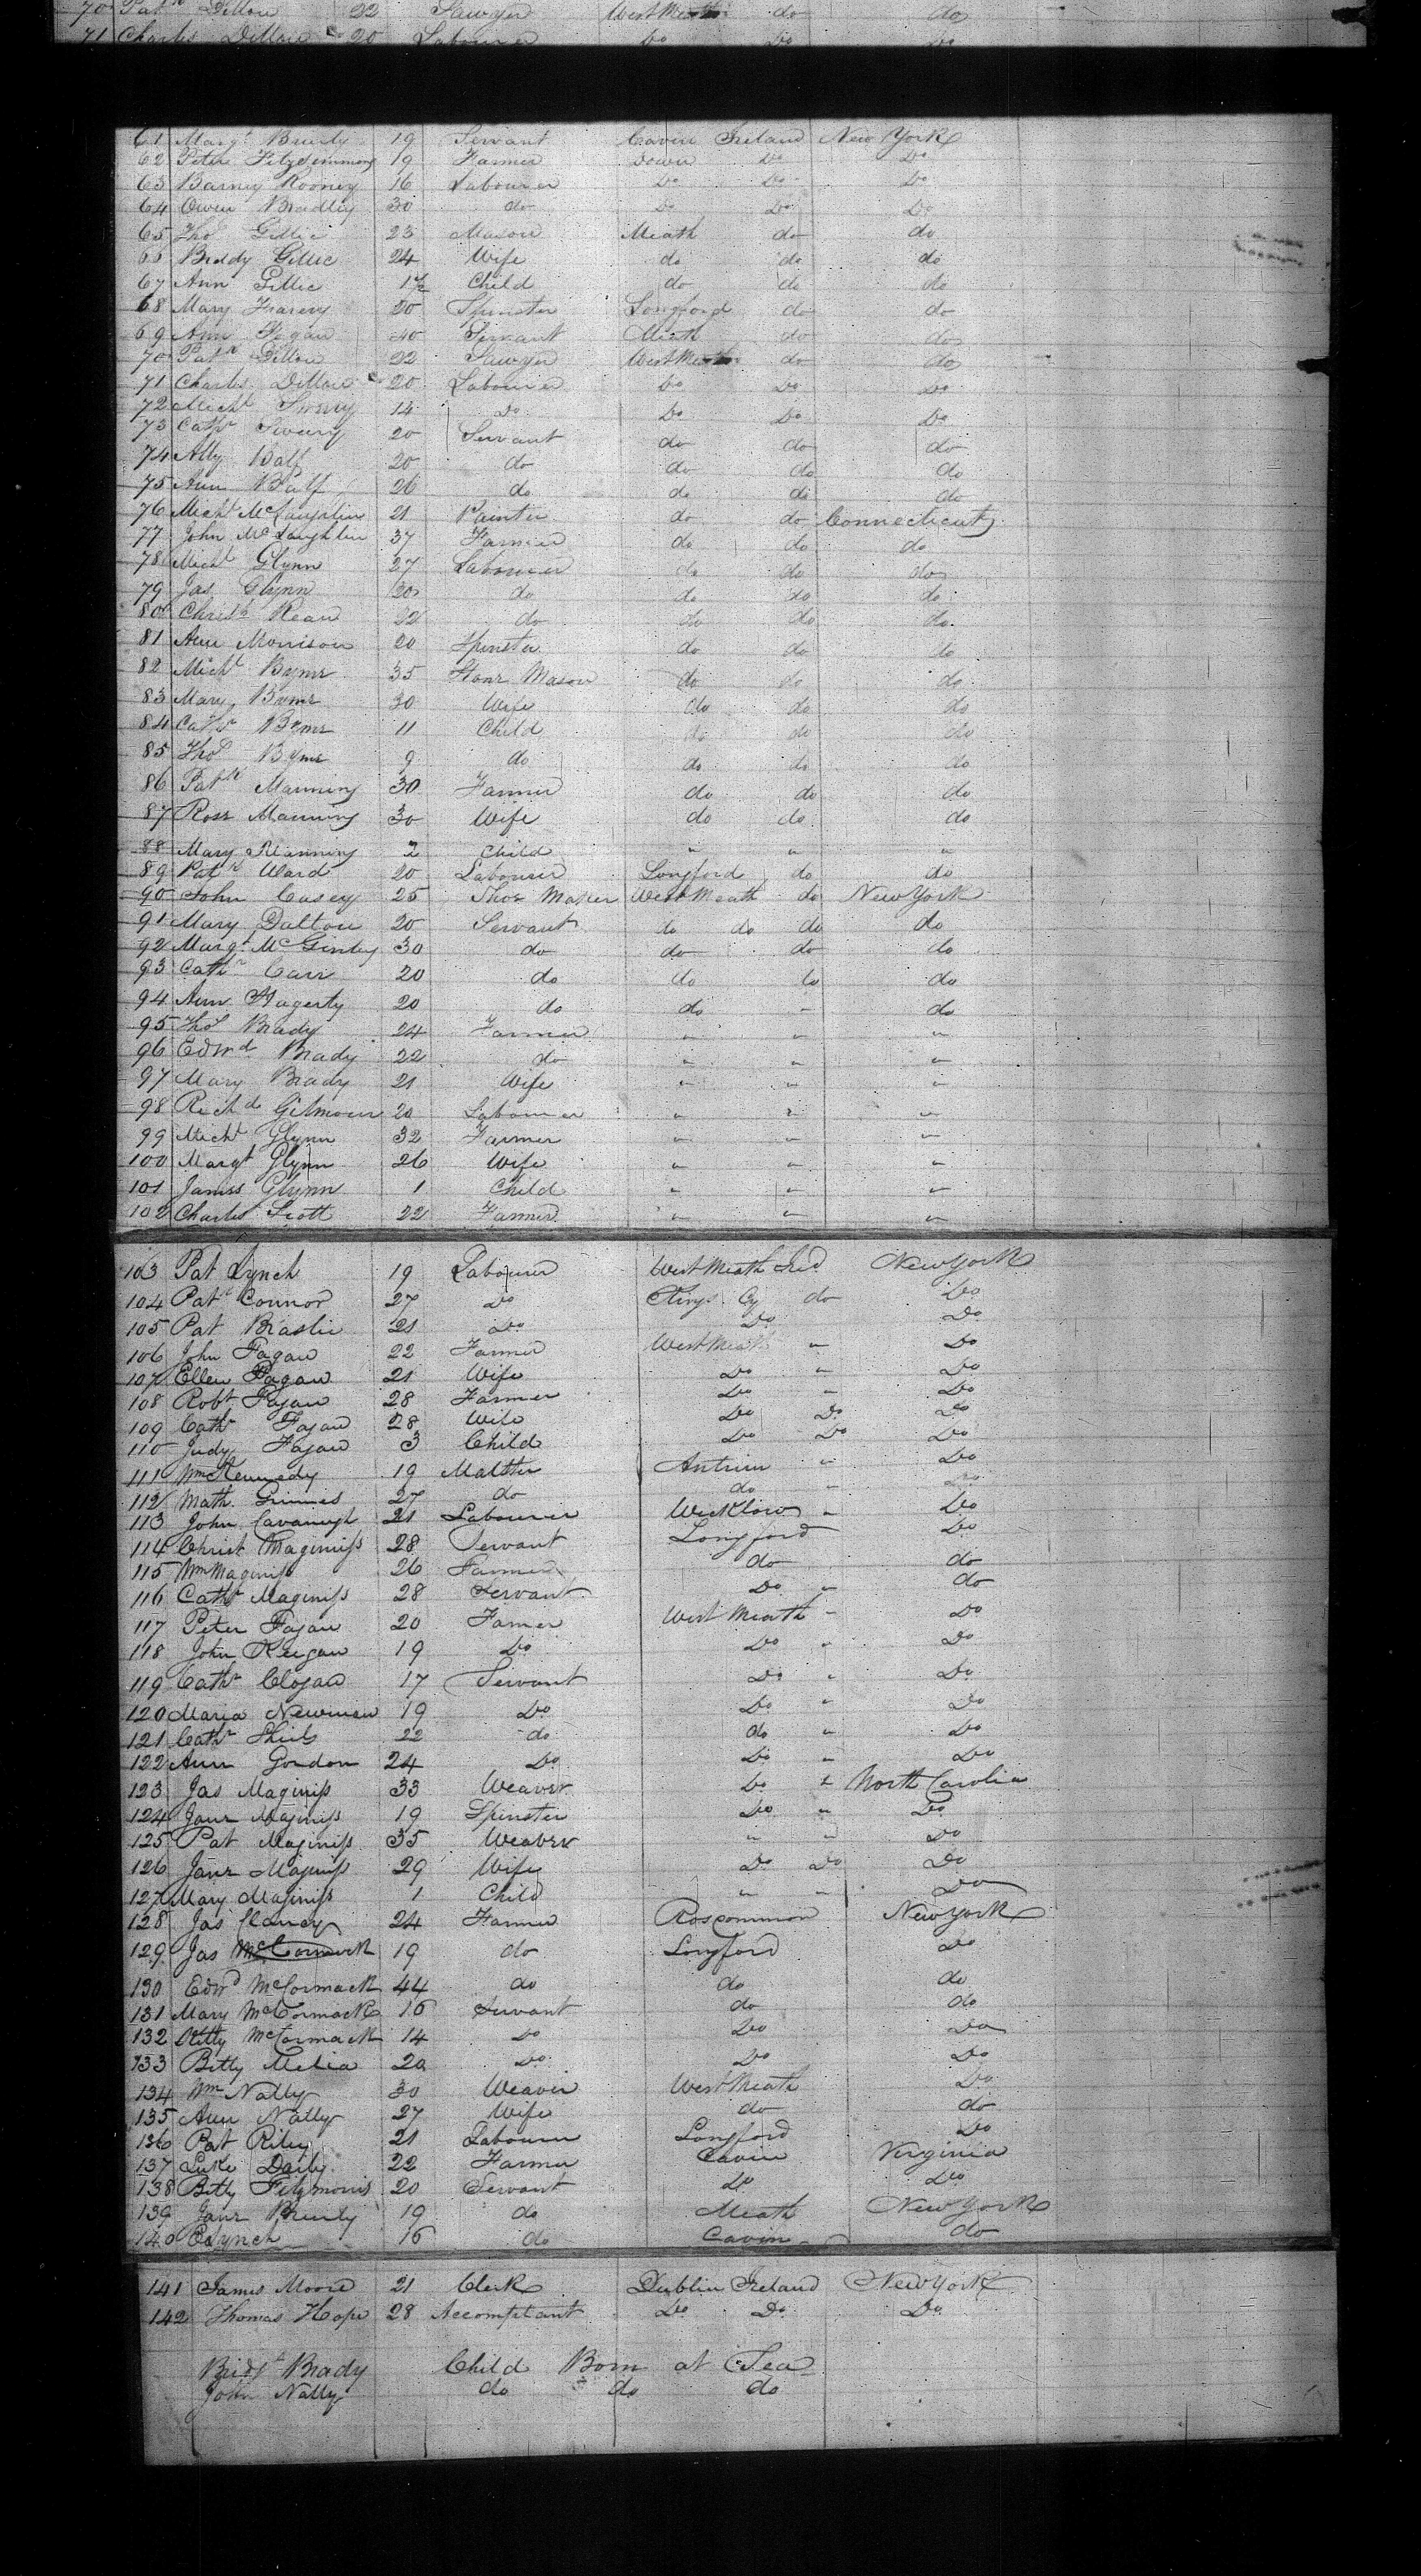 70 Patk Dillon 22 Sawyer West Meath do do
71 Charles Dillon 20 Labourer Do Do Do
61 Margt Brierly 19 Servant Cavin Ireland New York
62 Peter Fitzsimmons 19 Farmer Down Do Do
63 Barney Rooney 16 Labourer Do Do Do
64 Owen Bradley 30 do Do Do Do
65 Thos Gillic 23 Mason Meath do do
66 Biddy Gillic 24 Wife do do do
67 Ann Gillic 1½ Child do do do
68 Mary 20 Spinster Longford do do
69 Ann Fagan 40 Servant Meath do do
70 Patk Dillon 22 Sawyer West Meath do do
71 Charles Dillon 20 Labourer Do Do Do
72 Michl 14 Do Do Do Do
73 Cathr 20 Servant do do do
74 Ally Balf 20 do do do do
75 Ann Balf 26 do do do do
76 Michl McLaughlin 21 Painter do do Connecticut
77 John McLaughlin 37 Farmer do do do
78 Michl Glynn 27 Labourer do do do
79 Jas Glynn 30 do do do do
80 Christr Kean 22 do do do do
81 Ann Morrison 20 Spinster do do do
82 Michl Byrns 35 Stone Mason do do do
83 Mary Byrns 30 Wife do do do
84 Cathr Byrns 11 Child do do do
85 Thos Byrns 9 do do do do
86 Patk Manning 30 Farmer do do do
87 Rose Manning 30 Wife do do do
88 Mary Manning 2 Child " " "
89 Patk Ward 20 Labourer Longford do do
90 John Casey 25 Shoe Maker West Meath do New York
91 Mary Dalton 20 Servant do do do do
92 Margt McGinley 30 do do do do
93 Cathr Carr 20 do do do do
94 Ann Hagerty 20 do do " do
95 Thos Brady 24 Farmer " " "
96 Edwd Brady 22 do " " "
97 Mary Brady 21 Wife " " "
98 Richd Gilmour 20 Labourer " " "
99 Michl Glynn 32 Farmer " " "
100 Margt Glynn 26 Wife " " "
101 James Glynn 1 Child " " "
102 Charles Scott 22 Farmer " " "
103 Pat Lynch 19 Labourer West Meath Ireld New York
104 Patk Connor 27 Do Kings Cy do Do
105 Pat Braslin 21 Do Do Do
106 John Fagan 22 Farmer West Meath " Do
107 Ellen Fagan 21 Wife Do " Do
108 Robt Fagan 28 Farmer Do " Do
109 Cathr Fagan 28 Wife Do Do Do
110 Judy Fagan 3 Child Do Do Do
111 Wm Kennedy 19 Malster Antrim " Do
112 Math. Grimes 27 do do " Do
113 John Cavanugh 21 Labourer Wicklow " Do
114 Christ Maginiss 28 Servant Longford Do
115 Wm Maginiss 26 Farmer do do
116 Cathr Maginiss 28 Servant Do " do
117 Peter Fagan 20 Famer West Meath " Do
118 John Keegan 19 Do Do " Do
119 Cathr Clogan 17 Servant Do " Do
120 Maria Newman 19 Do Do " Do
121 Cathr Shiels 22 do do " Do
122 Ann Gordon 24 Do Do " Do
123 Jas Maginiss 33 Weaver Do " North Carolia
124 Jane Maginiss 19 Spinster Do " Do
125 Pat Maginiss 35 Weaver " " Do
126 Jane Maginiss 29 Wife Do Do Do
127 Mary Maginiss 1 Child " " Do
128 Jas Clancy 24 Farmer Roscommon New York
129 Jas McCormack 19 do Longford Do
130 Edwd McCormack 44 do do do
131 Mary McCormack 16 Servant do do
132 Kitty McCormack 14 Do Do Do
133 Betty Melia 20 Do Do Do
134 Wm Nally 30 Weaver West Meath Do
135 Ann Nally 27 Wife do do
136 Pat Riley 21 Labourer Longford Do
137 Luke Daily 22 Farmer Cavin Virginia
138 Betty Fitzmorris 20 Servant Do Do
139 Jane Brierly 19 do Meath New York
140 E Lynch 16 do Cavin do
141 James Moore 21 Clerk Dublin Ireland New York
142 Thomas Hope 28 Accomptant Do Do Do
Bridgt Brady Child Born at Sea
John Nally do do do